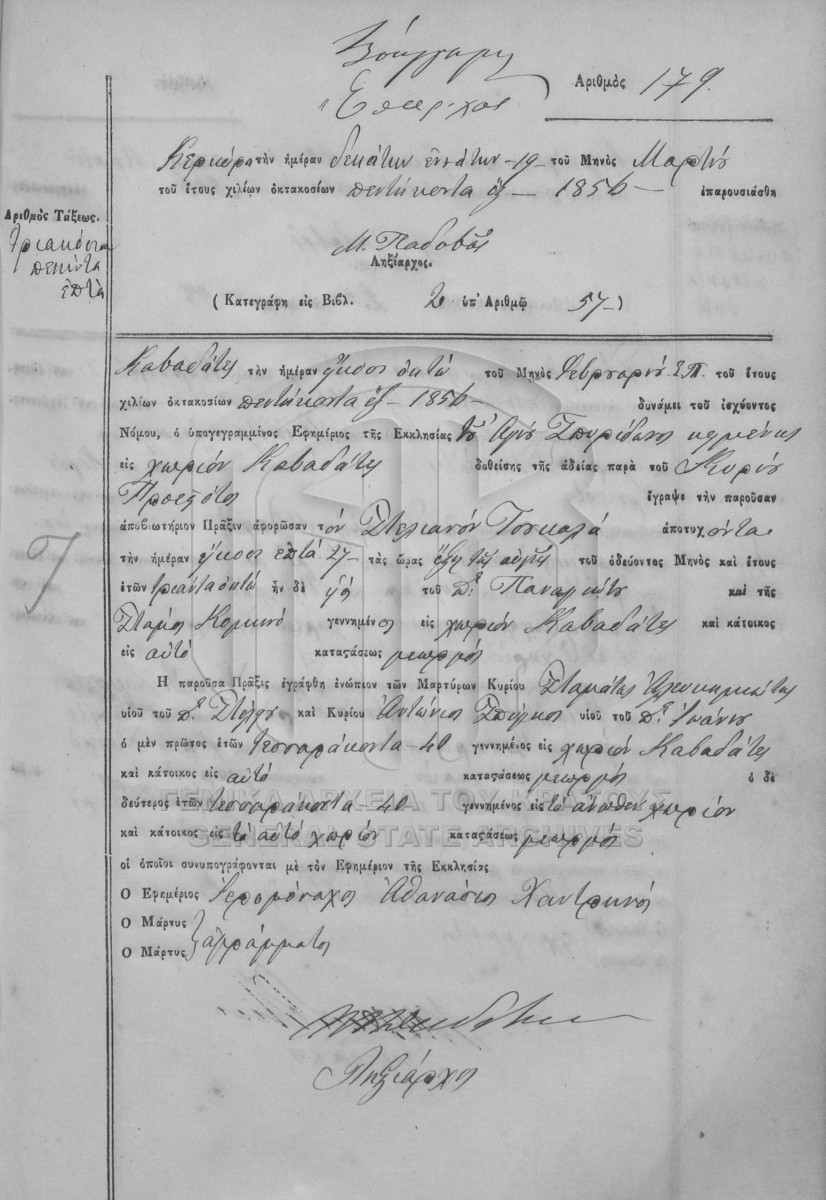 Ἀριθμὸς 179.
Ἔπαρχος
Κερκύρα τὴν ἡμέραν δεκάτην ἐννάτην -19- τοῦ Μηνὸς Μαρτίου
τοῦ ἔτους χιλίων ὀκτακοσίων πεντήκοντα ἓξ — 1856 — ἐπαρουσιάσθη
Ἀριθμὸς Τάξεως.
τριακόσια
πενῆντα
ἑπτὰ
Μ. Παδοβᾶς
Ληξίαρχος.
( Κατεγράφη εἰς Βιβλ. 2 ὑπ' Ἀριθμῷ 57 — )
Καβαδάτες τὴν ἡμέραν ἤκοσι ὀκτώ τοῦ Μηνὸς Φεβρουαρίου Ε.Π. τοῦ ἔτους
χιλίων ὀκτακοσίων πεντήκοντα ἓξ — 1856 — δυνάμει τοῦ ἰσχύοντος
Νόμου, ὁ ὑπογεγραμμένος Ἐφημέριος τῆς Ἐκκλησίας τοῦ Ἁγίου Σπυρίδωνος κειμένης
εἰς χωρίον Καβαδάτες δοθείσης τῆς ἀδείας παρὰ τοῦ Κυρίου
Προεστότος ἔγραψε τὴν παροῦσαν
ἀποβιωτήριον Πρᾶξιν ἀφορῶσαν τόν Στελιανόν Τσουκαλά ἀποτυχόντα
τὴν ἡμέραν ἤκοσι ἑπτά 27 — τὰς ὥρας ἕξη τῆς αὐγῆς τοῦ ὁδεύοντος Μηνὸς καὶ ἔτους
ἐτῶν τριάντα ὀκτώ ἦν δὲ υἱός τοῦ π. Παναγιώτου καὶ τῆς
Στάμος γεννημένος εἰς χωρίον Καβαδάτες καὶ κάτοικος
εἰς αὐτό καταςάσεως γεωργός
Ἡ παροῦσα Πρᾶξις ἐγράφθη ἐνώπιον τῶν Μαρτύρων Κυρίου Σταμάτης
υἱοῦ τοῦ π. καὶ Κυρίου Ἀντώνιος υἱοῦ τοῦ π. Ἰωάννου
ὁ μὲν πρῶτος ἐτῶν τεσσαράκοντα — 40 γεννημένος εἰς χωρίον Καβαδάτες
καὶ κάτοικος εἰς αὐτό καταςάσεως γεωργός ὁ δὲ
δεύτερος ἐτῶν τεσσαράκοντα 40 γεννημένος εἰς τό ἄνωθεν χωρίον
καὶ κάτοικος εἰς τό αὐτό χωρίον καταςάσεως γεωργός
οἱ ὁποῖοι συνυπογράφονται μὲ τὸν Ἐφημέριον τῆς Ἐκκλησίας
Ὁ Ἐφημέριος Ἱερομόναχος Ἀθανάσιος Χαντρινός
Ὁ Μάρτυς
Ὁ Μάρτυς ἀγράμματοι
Ληξίαρχος
ΓΕΝΙΚΑ ΑΡΧΕΙΑ ΤΟΥ ΚΡΑΤΟΥΣ
GENERAL STATE ARCHIVES